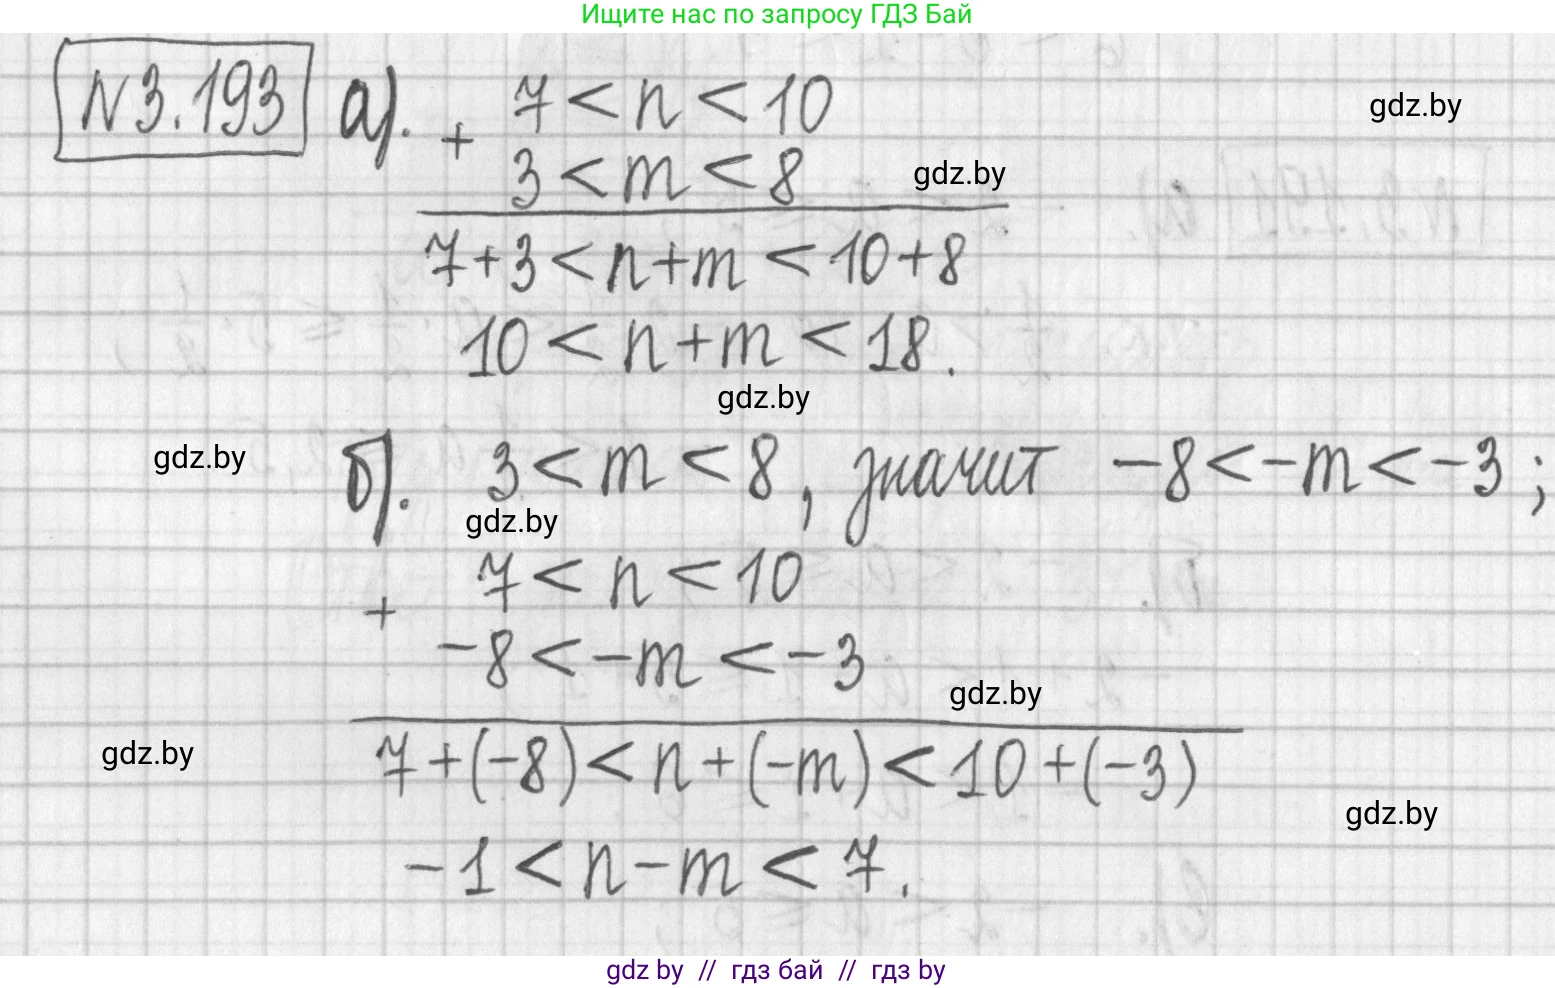 Ищите нас по запросу ГДЗ Бай
N3.193 а). 7 < n < 10
gdz.by
+
3 < m < 8
gdz.by
7+3 < n+m < 10+8
10 < n+m < 18.
gdz.by
gdz.by
б). 3 < m < 8, значит -8 < -m < -3;
gdz.by
7 < n < 10
+
-8 < -m < -3
gdz.by
gdz.by
7+(-8) < n+(-m) < 10+(-3)
gdz.by
-1 < n-m < 7.
gdz by // гдз бай // гдз by